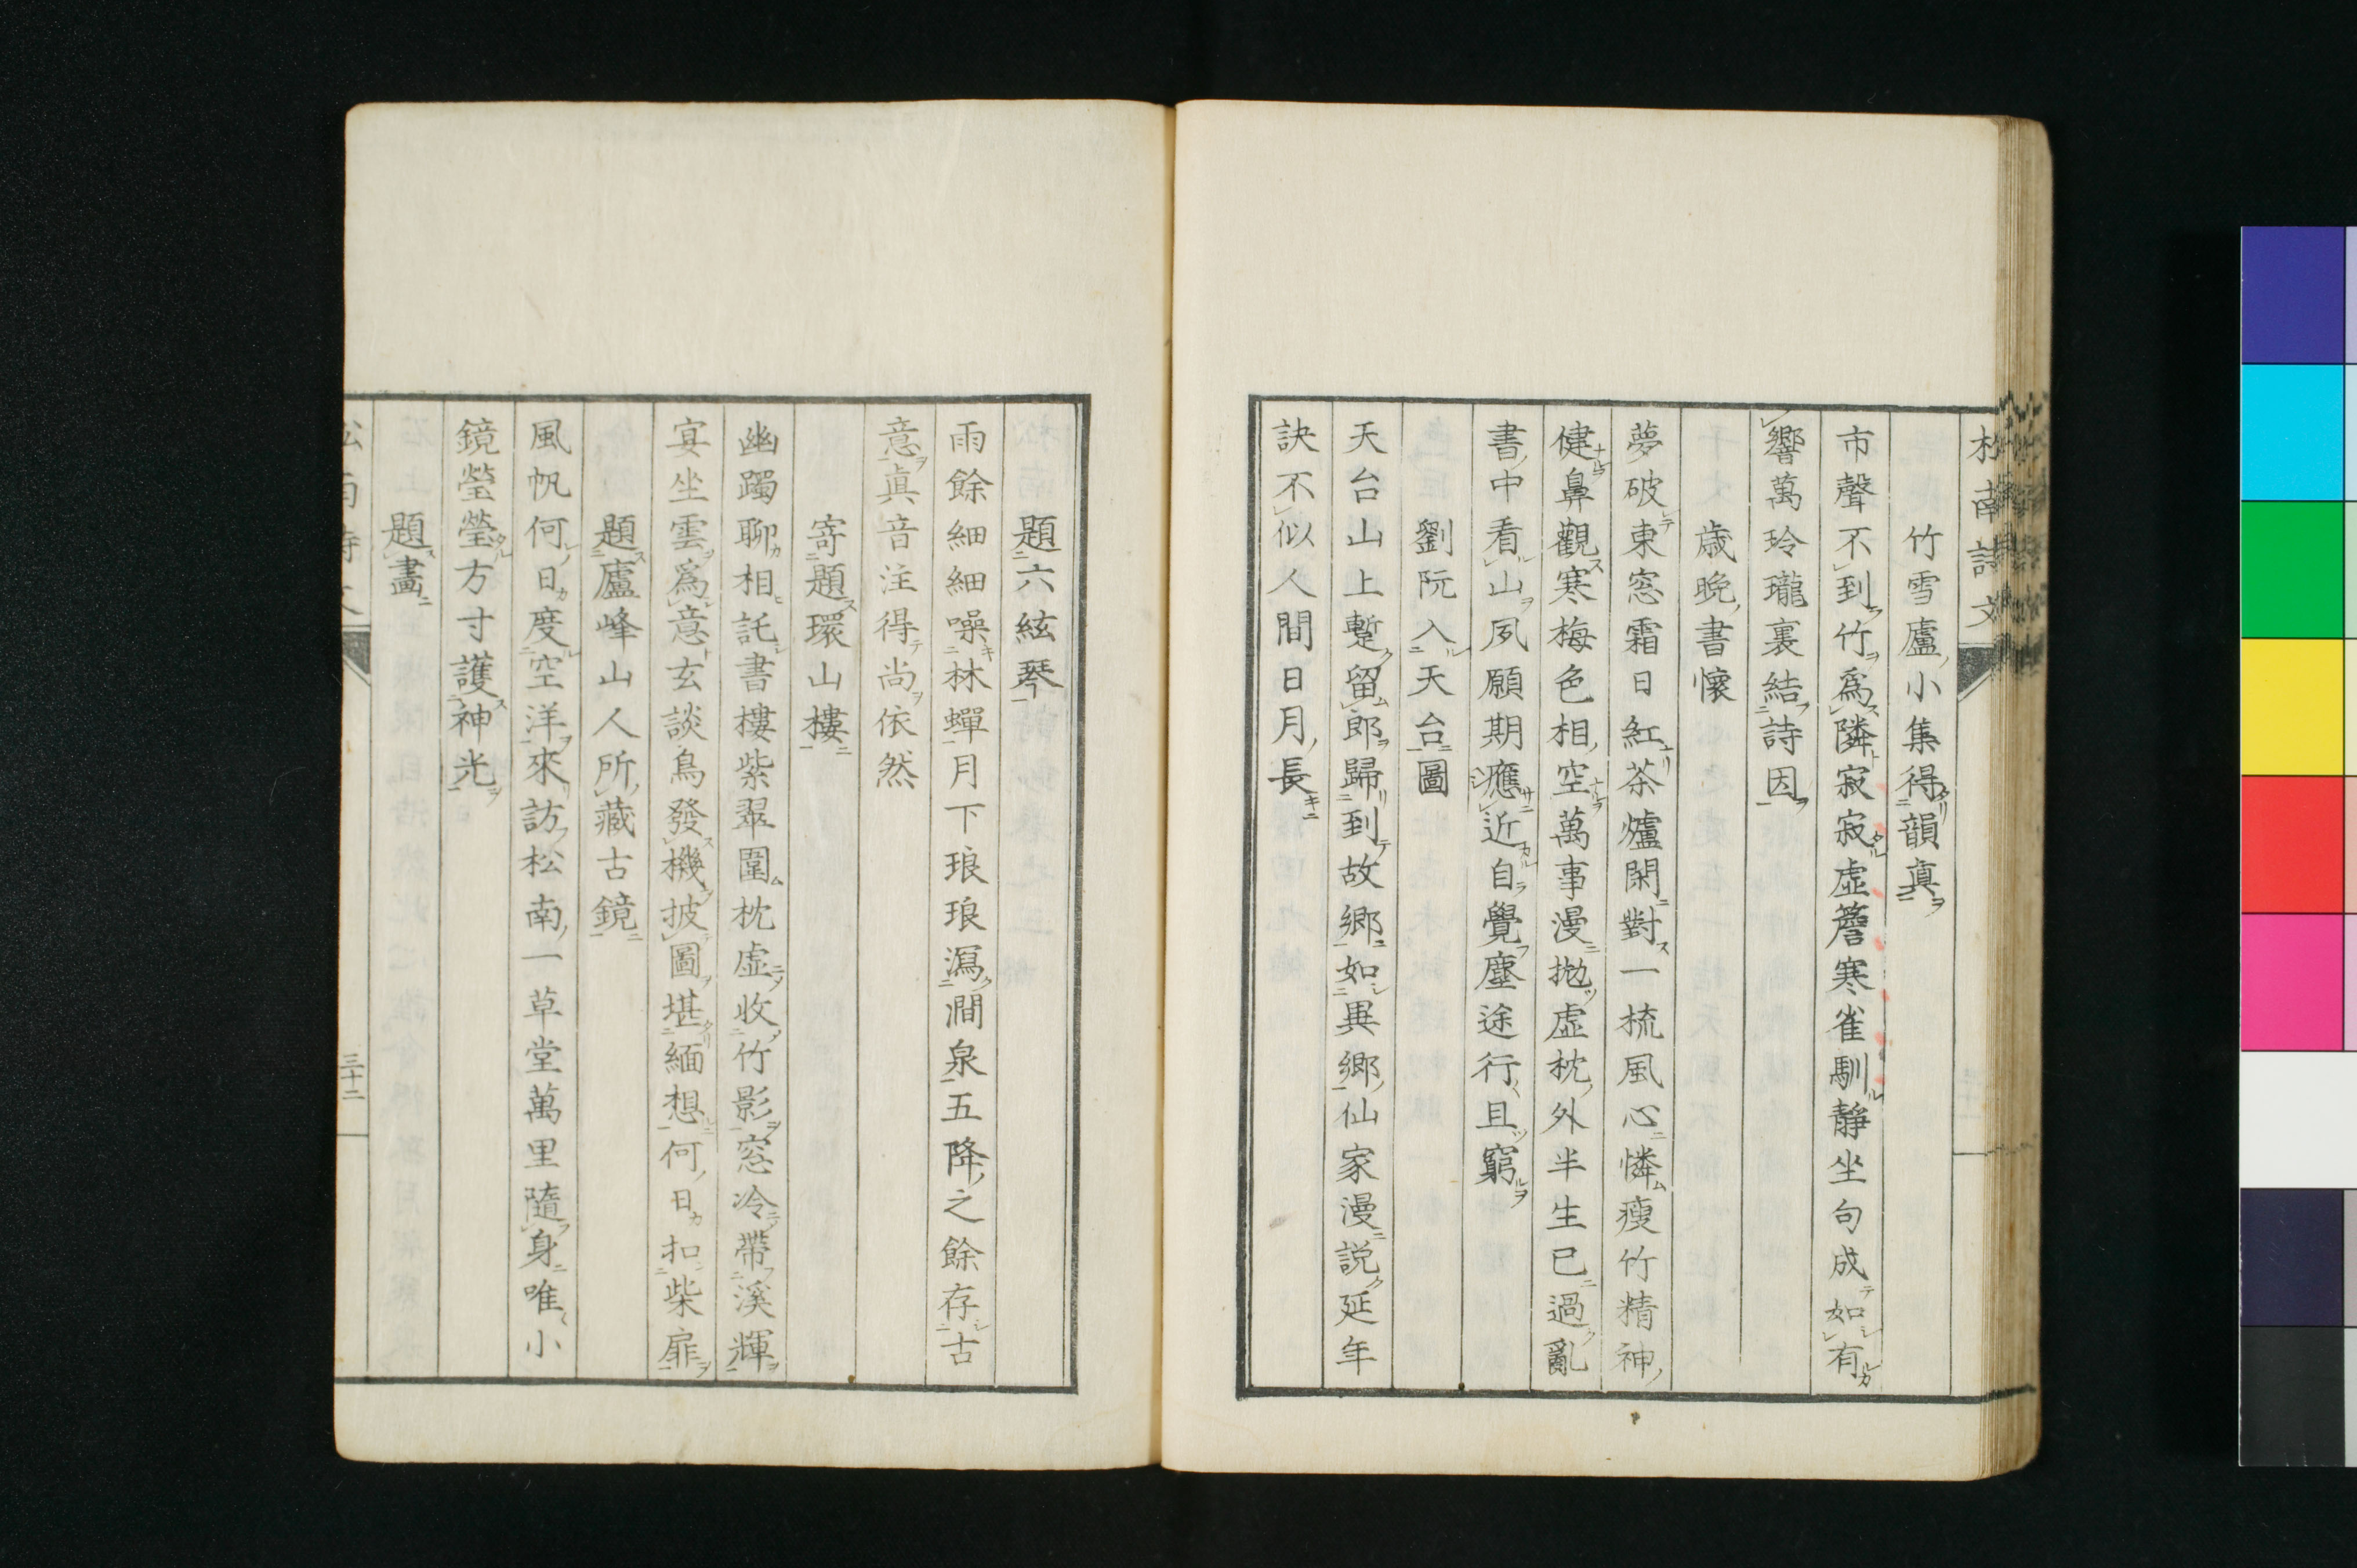 松南詩文
竹雪廬小集得韻真
市聲不到竹爲隣寂寂虛簷寒雀馴靜坐句成如有
響萬玲瓏裏結詩因
歳晩書懷
夢破東窓霜日紅茶爐閑對一梳風心憐瘦竹精神
健鼻觀寒梅色相空萬事漫抛虛枕外半生已過亂
書中看山夙願期應近自覺塵途行且窮
劉阮入天台圖
天台山上蹔留郎歸到故鄉如異鄉仙家漫説延年
訣不似人間日月長
題六絃琴
雨餘細細噪林蟬月下琅琅瀉澗泉五降之餘存古
意眞音注得尚依然
寄題環山樓
幽躅聊相託書樓紫翠圍枕虛收竹影窓冷帶溪輝
宴坐雲爲意玄談鳥發機披圖堪緬想何日扣柴扉
題廬峰山人所藏古鏡
風帆何日度空洋來訪松南一草堂萬里隨身唯小
鏡瑩瑩方寸護神光
題畫
三十二